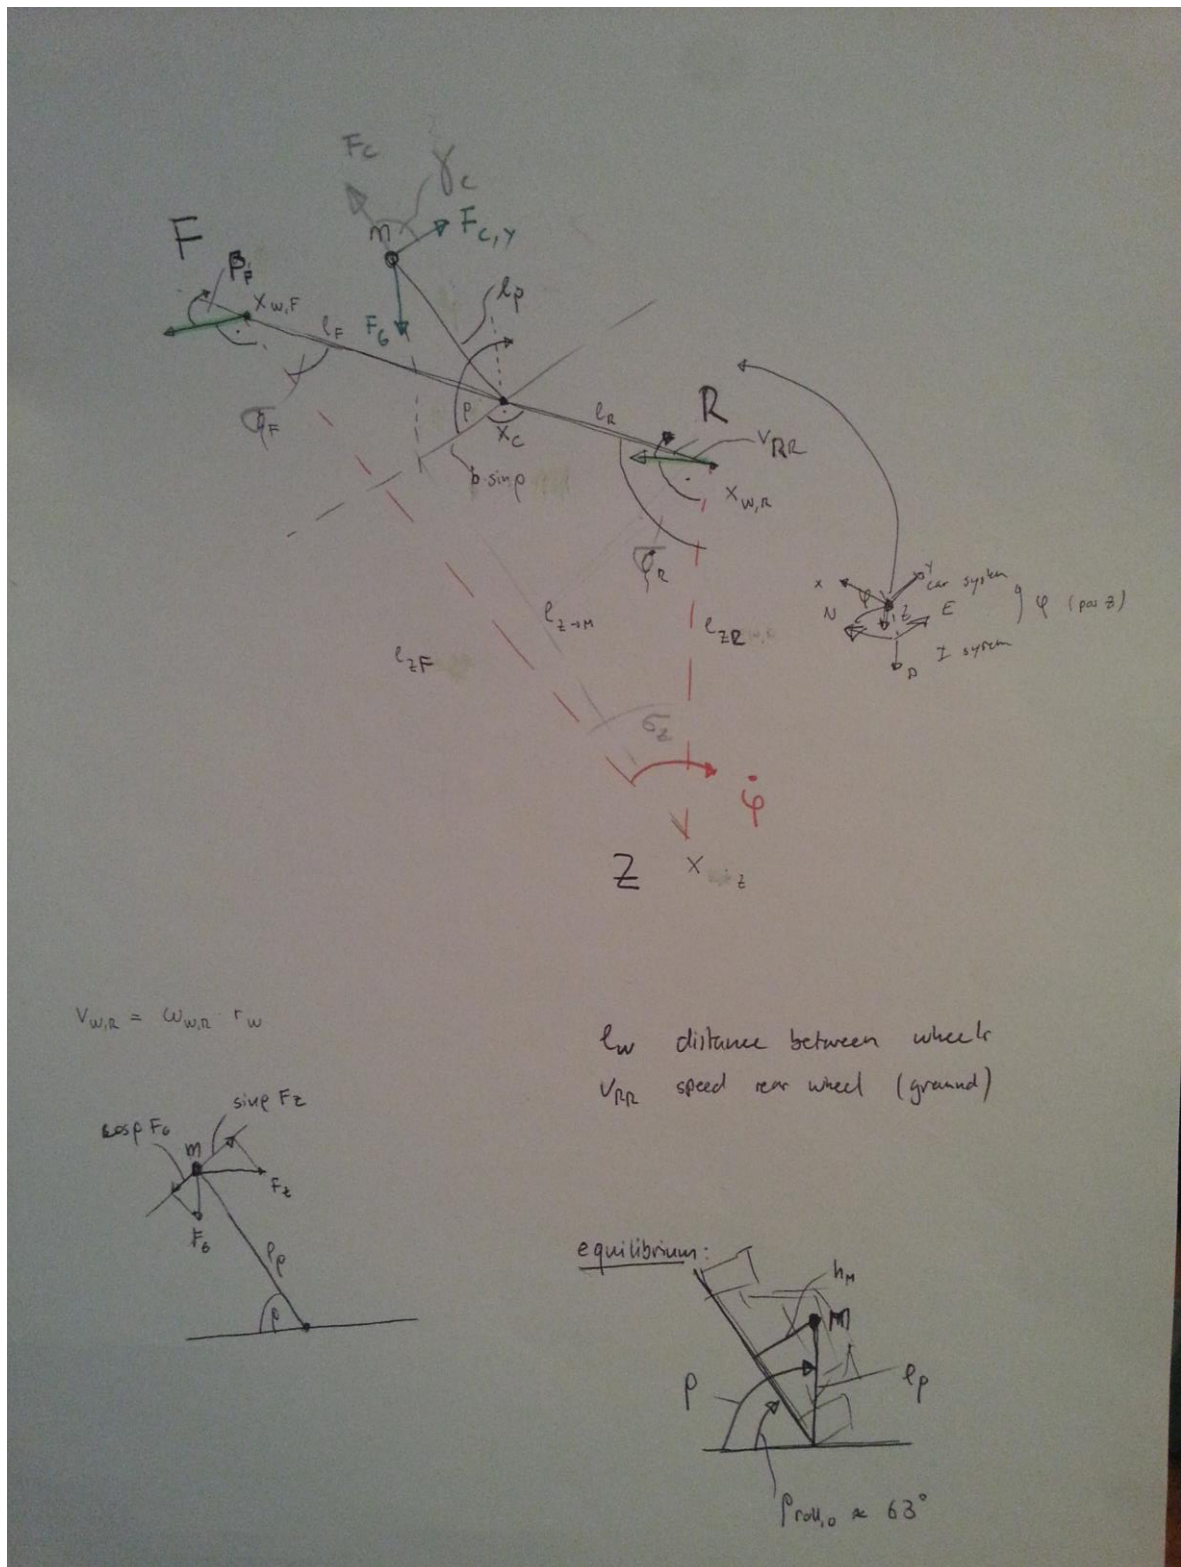 F_C
γ_C
F_{C,Y}
m
F
β_F
X_{W,F}
l_F
F_G
l_p
φ_F
ρ
X_C
l_R
R
V_{RR}
X_{W,R}
φ_R
l_{Z→M}
l_{ZR}
l_{ZF}
σ_Z
φ̇
Z
X_Z
x
Y
car system
φ
Z
N
E
φ (pos z)
I system
D
V_{W,R} = ω_{W,R} · r_W
l_W distance between wheels
V_{RR} speed rear wheel (ground)
sinρ F_Z
cosρ F_G
m
F_Z
F_G
l_p
ρ
equilibrium:
h_M
M
ρ
l_p
ρ_{roll,0} ≈ 63°